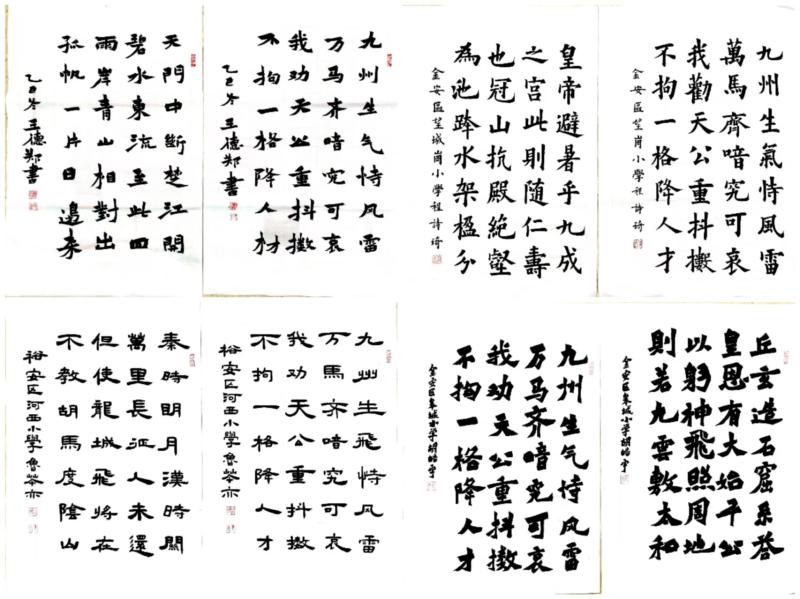 天門中斷楚江開
碧水東流至此回
兩岸青山相對出
孤帆一片日邉来
乙巳冬 王德鄭書
九州生气恃风雷
万马齐喑究可哀
我劝天公重抖擞
不拘一格降人材
乙巳冬 王德鄭書
皇帝避暑乎九成
之宫此則随仁壽
也冠山抗殿絶壑
為池跨水架楹分
金安區望城崗小學程詩琦
九州生氣恃風雷
萬馬齊喑究可哀
我勸天公重抖擻
不拘一格降人才
金安區望崗小學程詩琦
秦時明月漢時關
萬里長征人未還
但使龍城飛將在
不教胡馬度陰山
裕安区河西小學魯岑亦
九州生飛恃风雷
万馬齐喑究可哀
我劝天公重抖擞
不拘一格降人才
裕安区河西小學魯岑亦
九州生气恃风雷
万马齐喑究可哀
我劝天公重抖擞
不拘一格降人才
金安区皋城小学胡皓宇
丘玄造石窟系答
皇恩有大始平公
以躬神飛照周地
則若九雲敷太和
金安区皋城小学胡皓宇